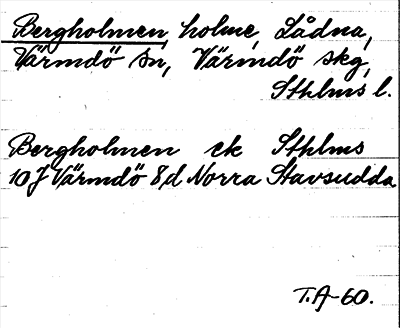 Bergholmen, holme, Lådna,
Värmdö sn, Värmdö skg,
Sthlms l.
Bergholmen ek Sthlms
10J Värmdö 8d Norra Stavsudda
T.A-60.